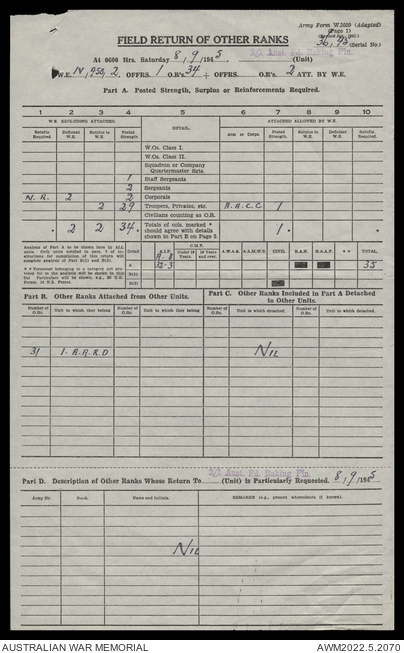 Army Form W.3009 (Adapted)
(Page 1)
FIELD RETURN OF OTHER RANKS
36/45 (Serial No.)
At 0600 Hrs. Saturday 8/9/1945 2/1 Aust. Fd. Baking Pln. (Unit)
W.E. IV, 952, 2. OFFRS. 1 O.R's 34 + OFFRS. O.R's. 2 ATT. BY W.E.
Part A. Posted Strength, Surplus or Reinforcements Required.
1 2 3 4 5 6 7 8 9 10
W.E. EXCLUDING ATTACHED. DETAIL ATTACHED ALLOWED BY W.E.
Reinfts. Required. Deficient W.E. Surplus to W.E. Posted Strength. Arm or Corps. Posted Strength. Surplus to W.E. Deficient W.E. Reinfts. Required.
W.Os. Class I.
W.Os. Class II.
Squadron or Company Quartermaster Sgts.
1 Staff Sergeants
2 Sergeants
N.R. 2 2 Corporals
2 29 Troopers, Privates, etc. A.A.C.C 1
Civilians counting as O.R.
2 2 34 Totals of cols. marked * should agree with details shown in Part E on Page 2 1
Analysis of Part A to be shown below by ALL units.
Detail A.I.F. C.M.F. Under 19 Years. 19 Years and over. A.W.A.S. A.A.M.W.S. CIVIL D.A.H. H.A.A.P. * * TOTAL
A-B
A 32-3 35
B(2)
B(3)
Part B. Other Ranks Attached from Other Units.
Part C. Other Ranks Included in Part A Detached to Other Units.
Number of O.Rs. Unit to which they belong Number of O.Rs. Unit to which they belong Number of O.Rs. Unit to which detached. Number of O.Rs. Unit to which detached.
31 1. A.A.R.D Nil
Part D. Description of Other Ranks Whose Return To 2/1 Aust. Fd. Baking Pln. (Unit) is Particularly Requested. 8/9/1945
Army No. Rank. Name and Initials. REMARKS (e.g., present whereabouts if known).
Nil
AUSTRALIAN WAR MEMORIAL AWM2022.5.2070